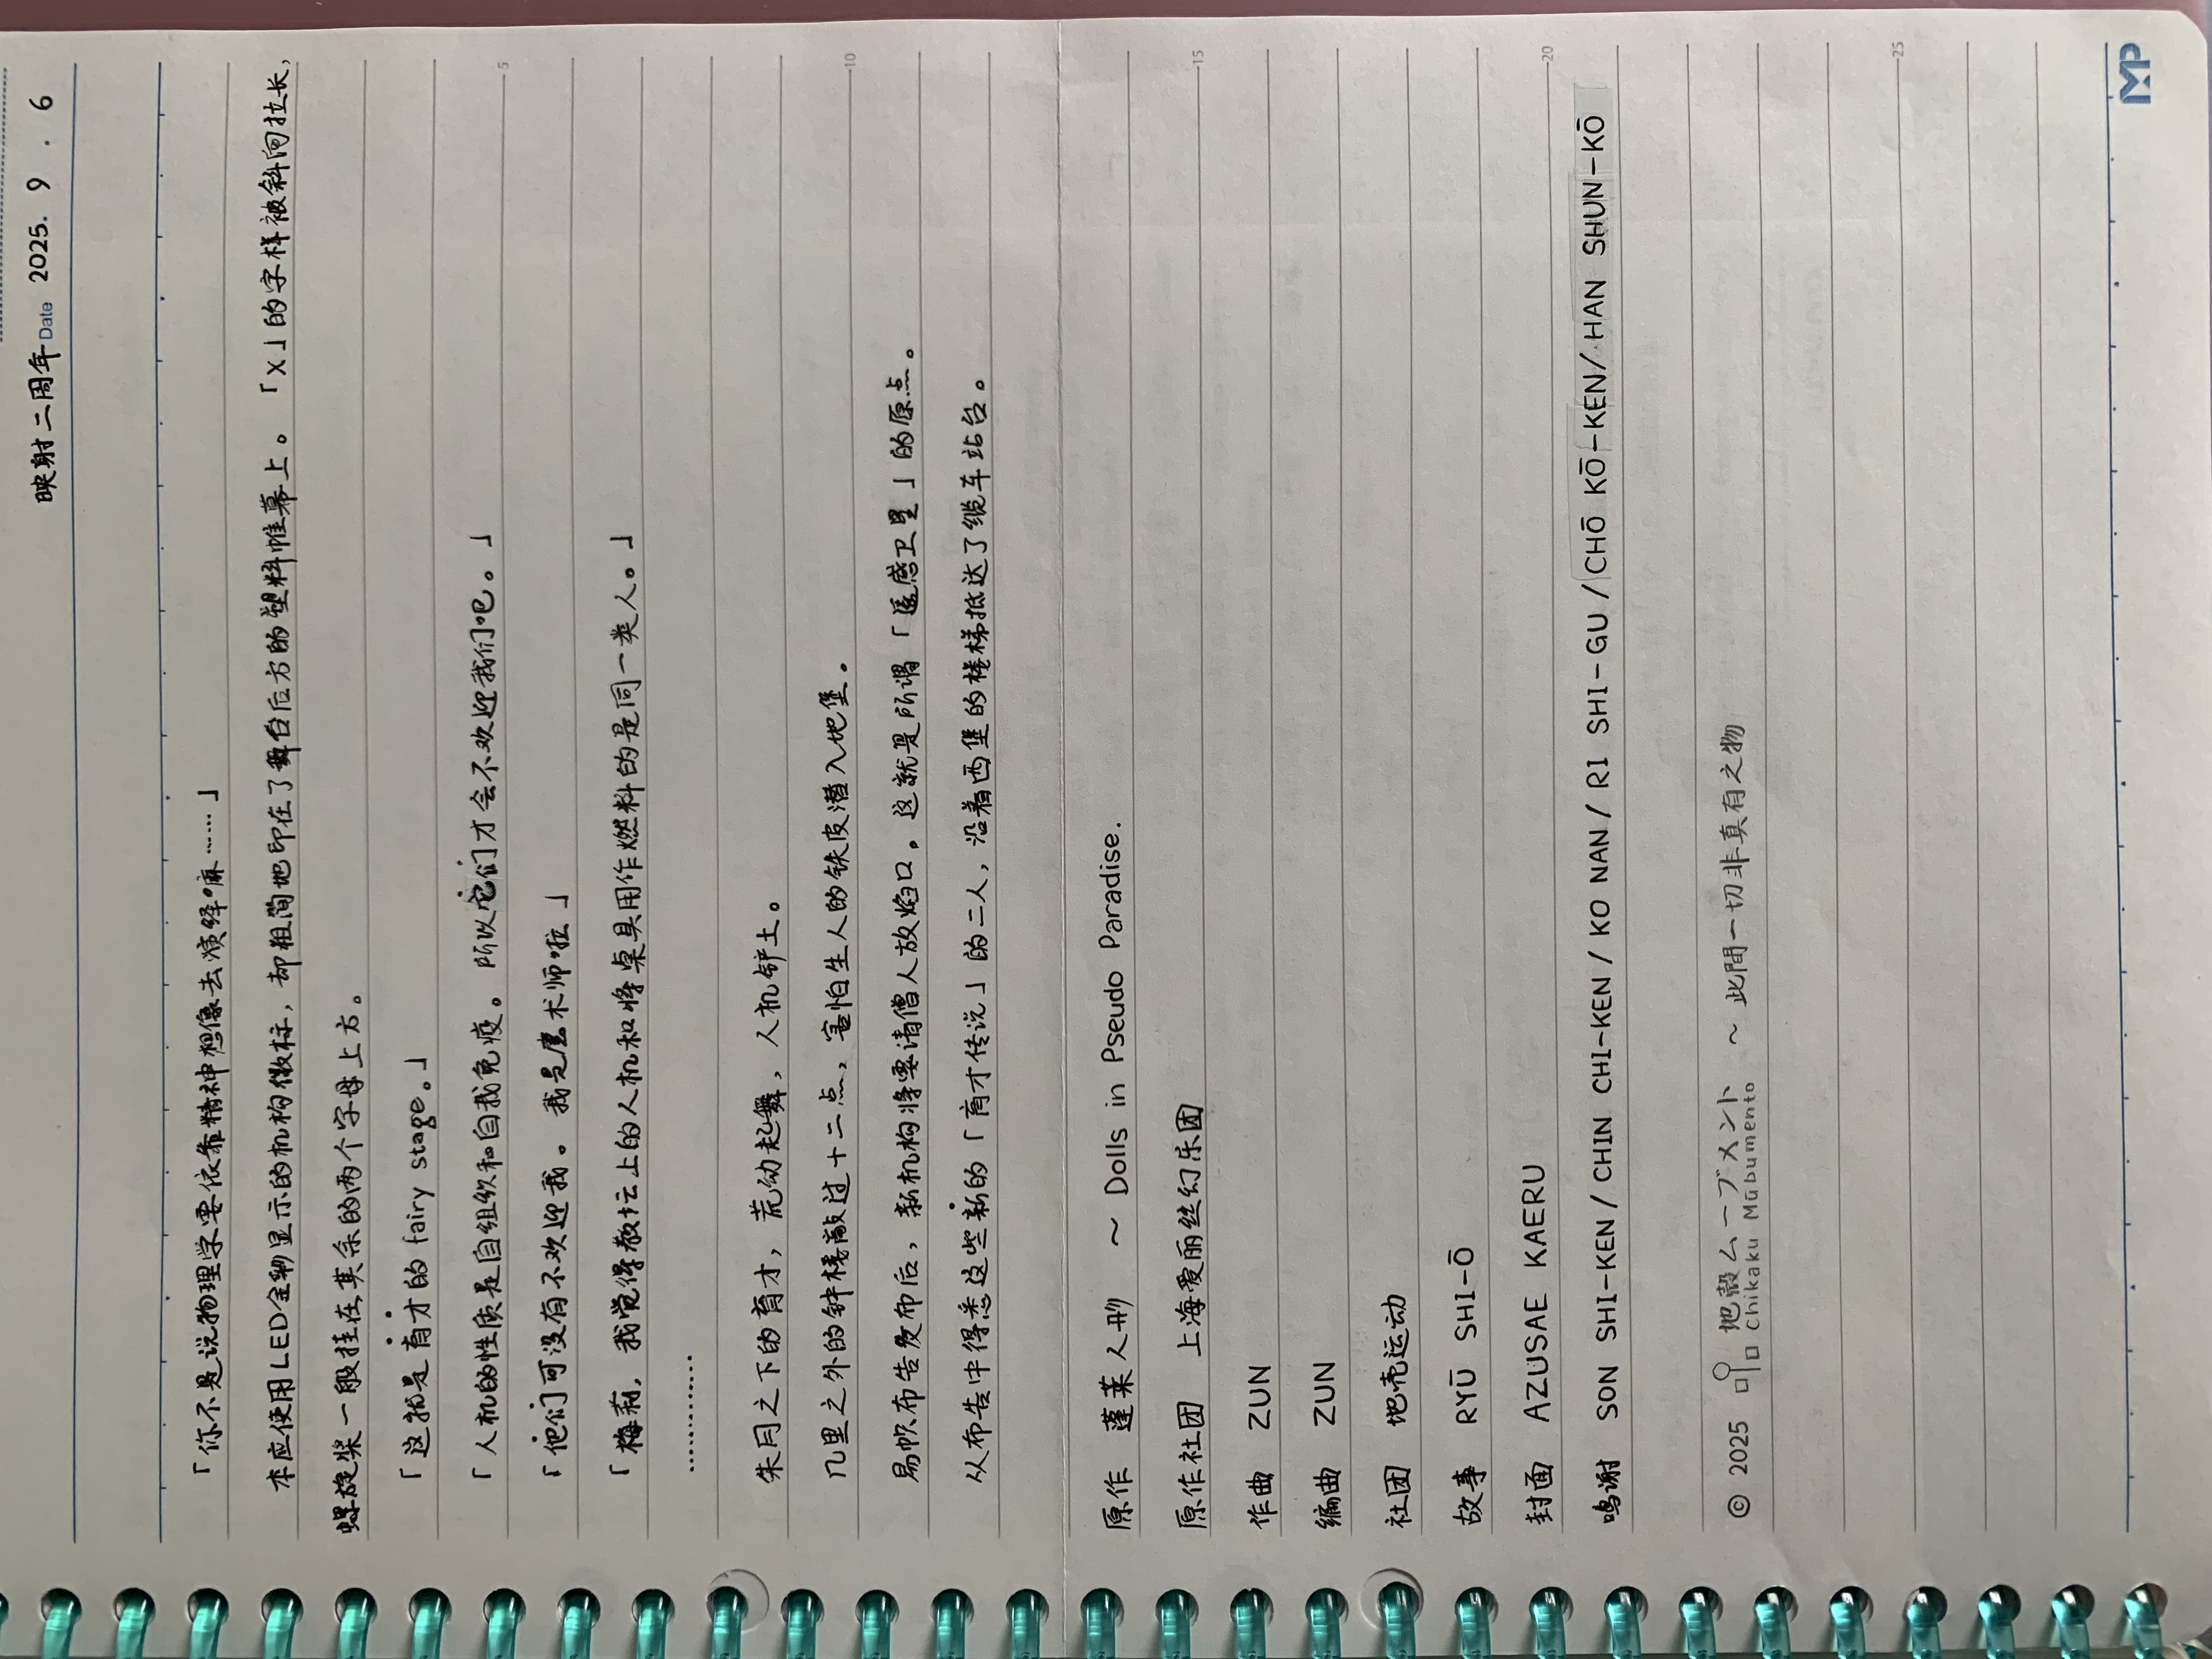 映射二周年 Date 2025. 9 . 6
「你不是说物理学要依靠精神想像去演绎嘛……」
本应使用LED全彩显示的机构徽标，却粗简地印在了舞台后方的塑料帷幕上。「X」的字样被斜向拉长，
螺旋桨一般挂在其余的两个字母上方。
「这就是育才的 fairy stage。」
「人机的性质是自组织和自我免疫。所以它们才会不欢迎我们吧。」
「他们可没有不欢迎我。我是魔术师啦」
「梅莉，我觉得教坛上的人机和将桌具用作燃料的是同一类人。」
…………
朱月之下的育才，荒动起舞，人机铲土。
几里之外的钟楼敲过十二点，害怕生人的铁皮潜入地堡。
易帜布告发布后，新机构将要请僧人放焰口。这就是所谓「遥感卫星」的原点。
从布告中得悉这些新的「育才传说」的二人，沿着西堡的楼梯抵达了缆车站台。
原作 蓬莱人形 ～ Dolls in Pseudo Paradise.
原作社团 上海爱丽丝幻乐团
作曲 ZUN
编曲 ZUN
社团 地壳运动
故事 RYŪ SHI-Ō
封面 AZUSAE KAERU
鸣谢 SON SHI-KEN / CHIN CHI-KEN / KO NAN / RI SHI-GU / CHŌ KŌ-KEN / HAN SHUN-KŌ
© 2025 地殻ムーブメント ～ 此間一切非真有之物
Chikaku Mūbumento
5
10
15
20
25
MP